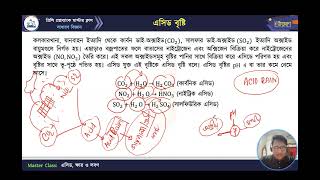 এসিড বৃষ্টি
কলকারখানা, যানবাহন ইত্যাদি থেকে কার্বন ডাই-অক্সাইড(CO₂), সালফার ডাই-অক্সাইড (SO₂) ইত্যাদি অক্সাইড
বায়ুমন্ডলে নির্গত হয়। এছাড়াও বজ্রপাতের ফলে বাতাসের নাইট্রোজেন এবং অক্সিজেন বিক্রিয়া করে নাইট্রোজেনের
অক্সাইড (NO, NO₂) তৈরি করে। এই সকল অক্সাইডসমূহ বৃষ্টির পানির সাথে বিক্রিয়া করে এসিডে পরিণত হয় এবং
বৃষ্টির সাথে ভূ-পৃষ্ঠে পতিত হয়। এসিড যুক্ত এই বৃষ্টিকে এসিড বৃষ্টি বলে। এসিড বৃষ্টির pH 4 বা তার কমে নেমে
আসে।
ACID RAIN
CO₂ + H₂O → H₂CO₃ (কার্বনিক এসিড)
NO₂ + H₂O → HNO₃ (নাইট্রিক এসিড)
SO₂ + H₂O → H₂SO₄ (সালফিউরিক এসিড)
pH
Master Class: এসিড, ক্ষার ও লবণ